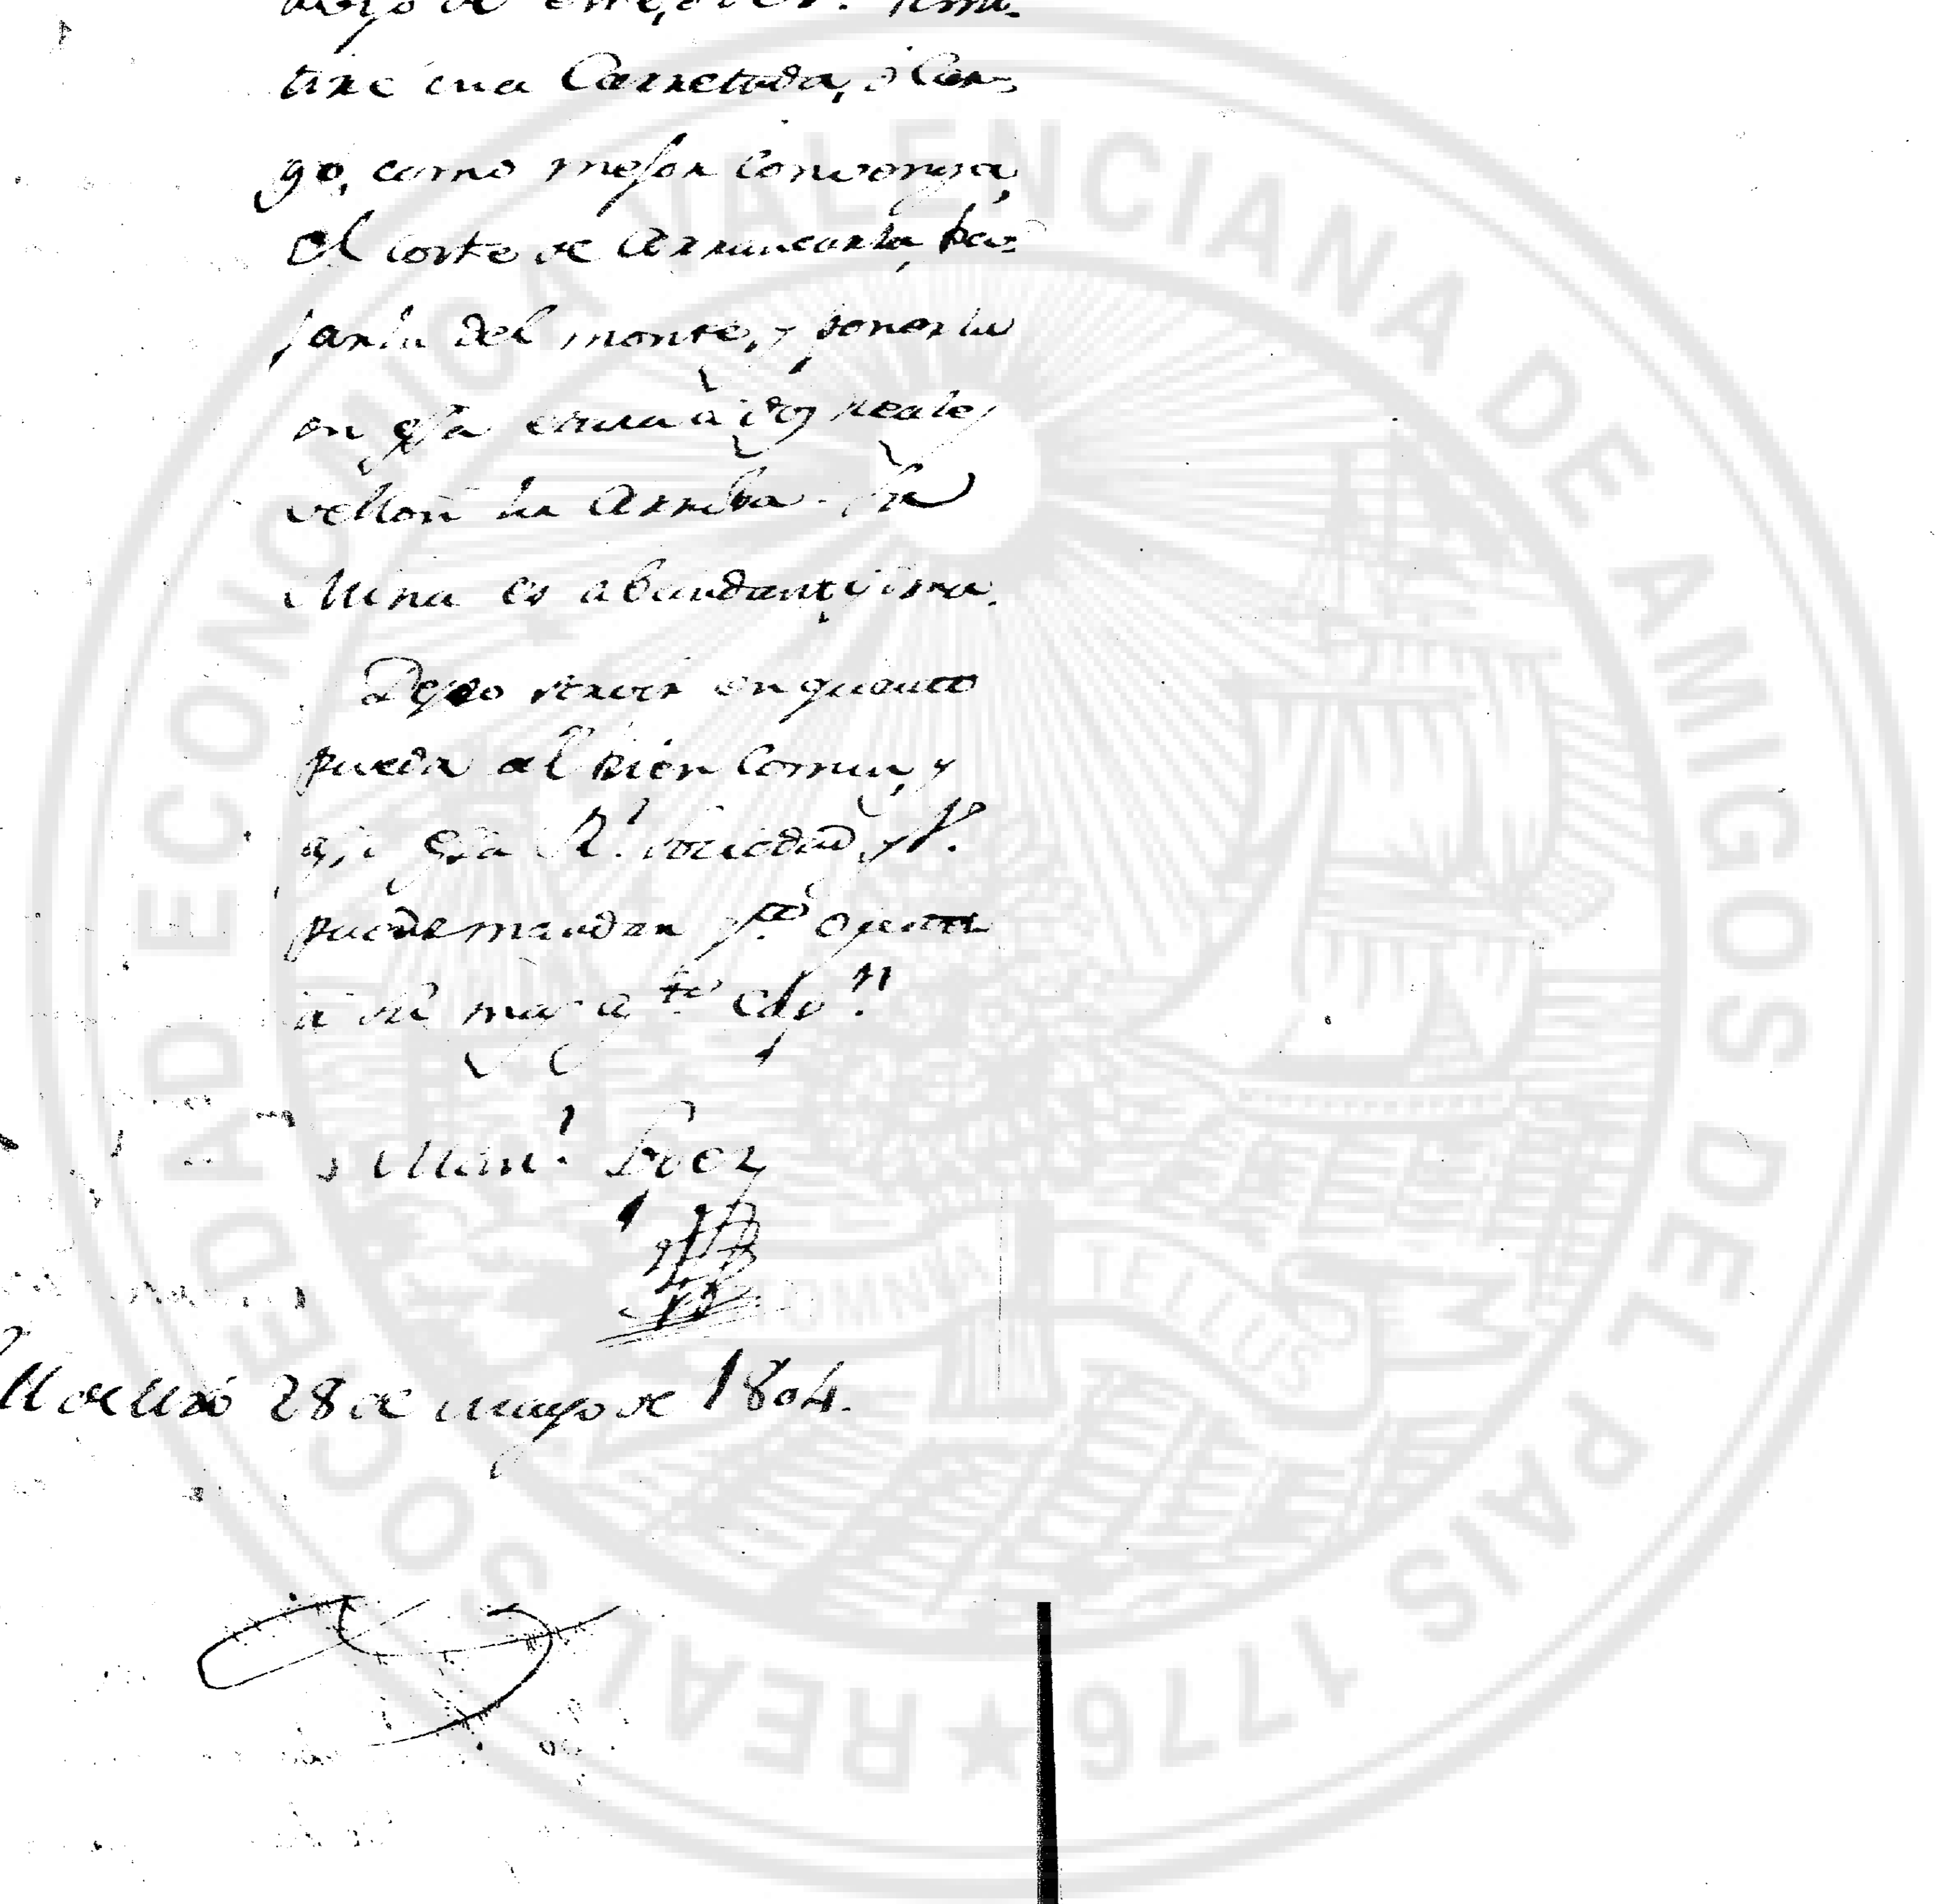 tiré una Carretada, ò Car-
go, como mejor Convenga,
El corte de Arrancarla, ba-
jarla del monte, y ponerla
en essa estará à dos Reales
vellon la Arroba. La
Mina es abundantissima.
Deseo servir en quanto
pueda al bien Comun, y
assi essa Rl. Sociedad y V.
puede mandar
à su mas atto
Manl. Lopez
28 de mayo de 1804.
REAL SOCIEDAD ECONOMICA VALENCIANA DE AMIGOS DEL PAIS 1776